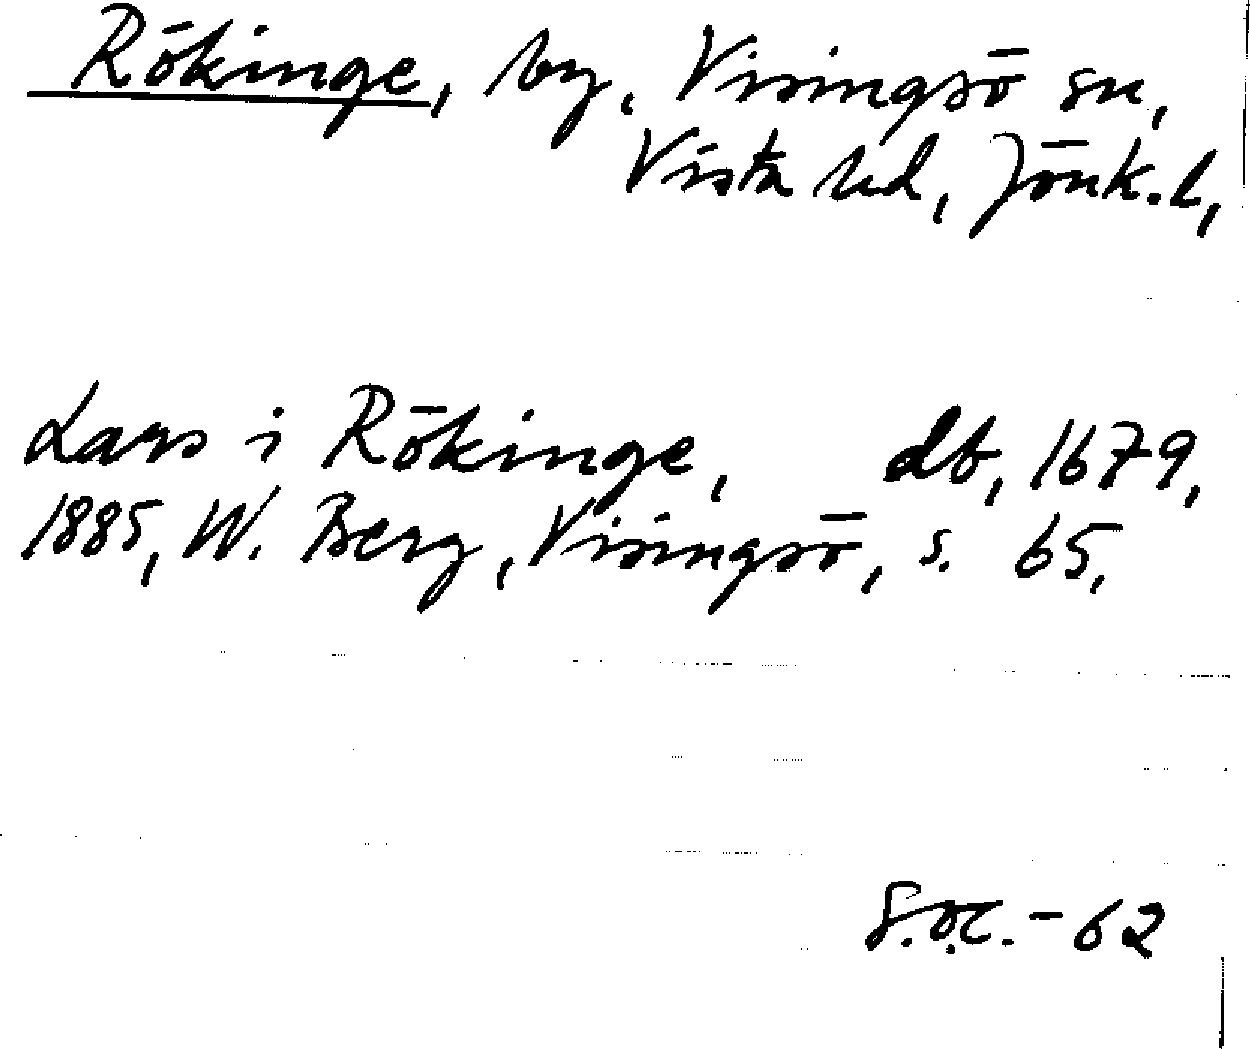 Rökinge, by, Visingsö sn,
Vista hd, Jönk. l,
Lars i Rökinge, db, 1679,
1885, W. Berg, Visingsö, s. 65,
S.Ö.C. - 62